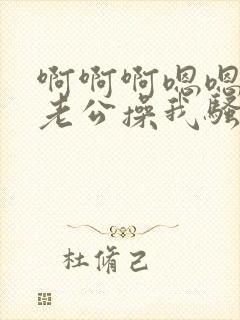 啊啊啊嗯嗯
老公操我骚
杜脩己